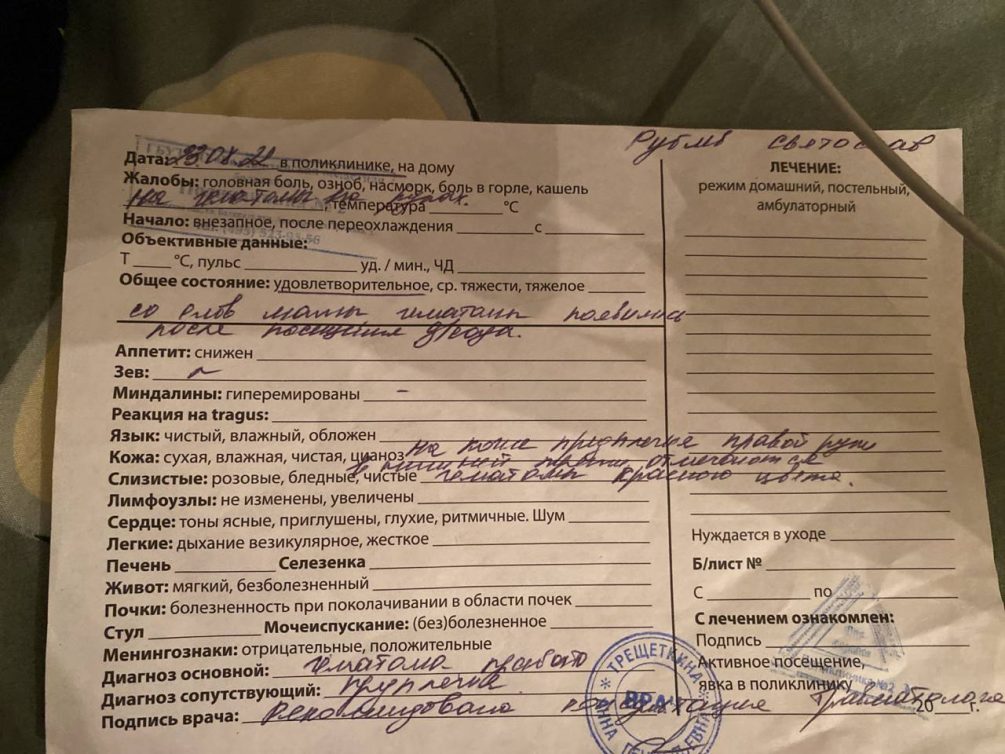 святослав
Дата: в поликлинике, на дому
Жалобы: головная боль, озноб, насморк, боль в горле, кашель
на гематомы на руках.
температура °C
Начало: внезапное, после переохлаждения с
Объективные данные:
Т °C, пульс уд. / мин., ЧД
Общее состояние: удовлетворительное, ср. тяжести, тяжелое
со слов мамы гематомы появились
после посещения
Аппетит: снижен
Зев:
Миндалины: гиперемированы -
Реакция на tragus:
Язык: чистый, влажный, обложен
на коже предплечья правой руки
Кожа: сухая, влажная, чистая, цианоз
отмечаются
Слизистые: розовые, бледные, чистые гематомы красного цвета.
Лимфоузлы: не изменены, увеличены
Сердце: тоны ясные, приглушены, глухие, ритмичные. Шум
Легкие: дыхание везикулярное, жесткое
Печень Селезенка
Живот: мягкий, безболезненный
Почки: болезненность при поколачивании в области почек
Стул Мочеиспускание: (без)болезненное
Менингознаки: отрицательные, положительные
Диагноз основной: гематома правого
Диагноз сопутствующий: предплечья
Подпись врача: Рекомендована консультация травматолога
ЛЕЧЕНИЕ:
режим домашний, постельный,
амбулаторный
Нуждается в уходе
Б/лист №
С по
С лечением ознакомлен:
Подпись
Активное посещение,
явка в поликлинику
20 г.
ТРЕЩЕТКИНА
ВРАЧ